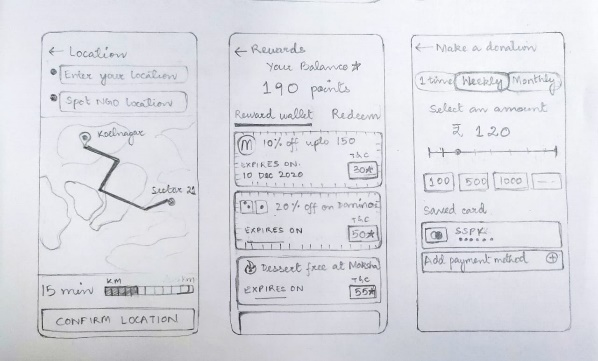 ← Location
Enter your Location
Spot NGO Location
Koelnagar
Sector 21
15 min
KM
KM
CONFIRM LOCATION
← Rewards
Your Balance ★
190 points
Reward wallet
Redeem
M 10% off upto 150
EXPIRES ON
10 DEC 2020
T&C
30★
20% off on Dominos
EXPIRES ON
T&C
50★
Dessert free at Moksha
EXPIRES ON
T&C
55★
← Make a donation
1 time
Weekly
Monthly
Select an amount
₹ 120
100
500
1000
Saved card
Add payment method ⊕